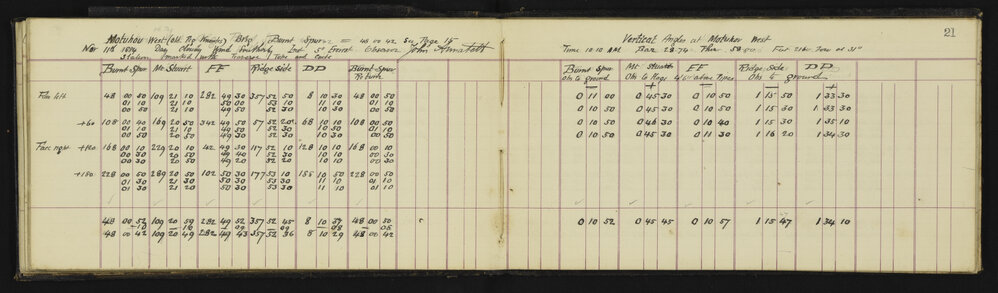 21
Motuhou West (old Trig Mounts) Brg Burnt Spur = 48 00 42 See Page 15
Nov 11th 1894 Day Cloudy Wind Southerly Inst 5" Everest Observer John Annabell
Station marked with Tube and
Burnt Spur Mt Stuart FF Ridge Side DD Burnt Spur Return
Face left 48 00 50 109 21 10 282 49 30 357 52 50 8 10 30 48 00 50
01 10 21 10 49 50 53 10 11 10 01 10
00 50 20 50 49 50 52 30 10 10 00 50
+60 108 00 40 169 20 50 342 49 50 57 52 20 68 10 10 108 00 50
01 10 21 10 50 10 52 30 10 50 01 10
00 50 20 50 49 50 52 30 10 10 00 50
Face right +120 168 00 10 229 20 10 42 49 30 117 52 10 128 10 10 168 00 10
00 30 20 50 49 40 52 30 10 10 00 30
00 10 20 20 49 20 52 20 10 10 00 30
+180 228 00 50 289 20 50 102 50 30 177 53 10 188 10 50 228 00 50
01 30 21 30 50 30 53 30 11 10 01 30
01 30 21 20 50 30 53 30 11 10 01 10
48 00 52 109 20 59 282 49 52 357 52 45 8 10 37 48 00 50
10 10 09 09 08 08
48 00 42 109 20 49 282 49 43 357 52 36 8 10 29 48 00 42
Vertical Angles at Motuhou West
Time 10.10 AM Bar 28.74 Ther 58.00 For 21st
Burnt Spur Mt Stuart FF Ridge Side DD
Obs to ground Obs to Flags 4'6" above Pipes Obs to ground
0 11 00 0 45 30 0 10 50 1 15 50 1 33 30
0 10 50 0 45 30 0 10 50 1 15 30 1 33 30
0 10 50 0 46 30 0 10 40 1 15 30 1 35 10
0 10 50 0 45 30 0 11 30 1 16 20 1 34 30
0 10 52 0 45 45 0 10 57 1 15 47 1 34 10